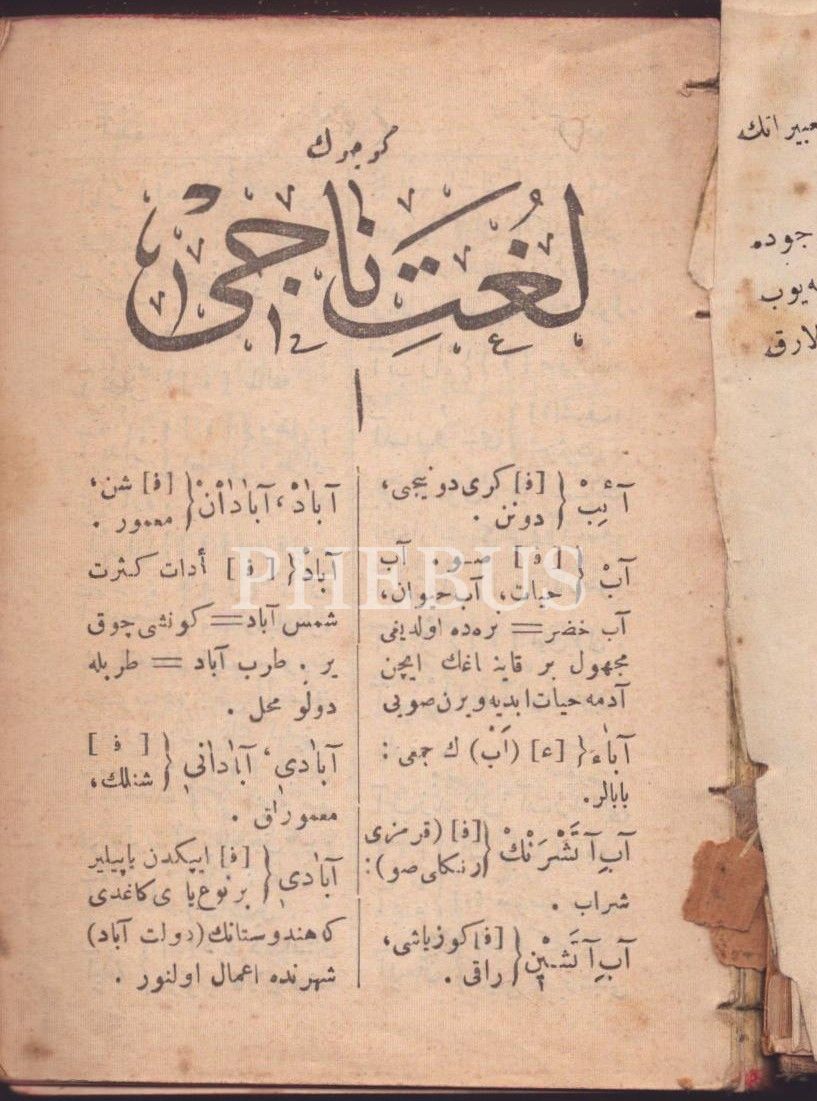 كوجوك
لُغَتِ نَاجِى
ا
آئِبْ { [ف] كرى دونيجى،
دونن .
آبْ { [ف] صو . آب
حيات، آب حيوان،
آب خضر = نره ده اولديغى
مجهول بر قايناغك ايچن
آدمه حيات ابديه ويرن صويى
آباء { [ع] (اَبْ) ك جمعى :
بابالر.
آبِ آتَشْرَنْكْ { [ف] (قرمزى
رنكلى صو):
شراب .
آبِ آتَشينْ { [ف] كوزياشى،
راقى .
آبادْ، آبادانْ { [ف] شن،
معمور .
آبادْ { [ف] أدات كثرت
شمس آباد = كونشى چوق
ير . طرب آباد = طربله
دولو محل .
آبادى، آبادانى { [ف]
شنلك،
معمورلق .
آبادى { [ف] ايپكدن ياپيلير
برنوع ياى كاغدى
كه هندوستانك (دولت آباد)
شهرنده اعمال اولنور .
عبير اتك
جوده
ه يوب
لارق
PHEBUS